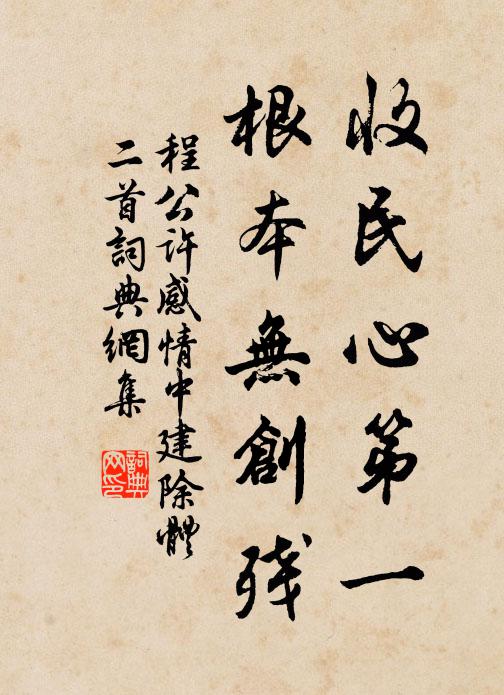 收民心第一
根本無創残
程公許感情中建除體
二首詞典網集
詞典
网印